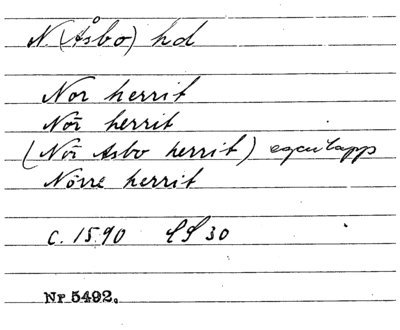 N. (Åsbo) hd
Nor herrit
Nör herrit
(Nör Asbo herrit)
Nörre herrit
c. 1590 30
Nr 5492.